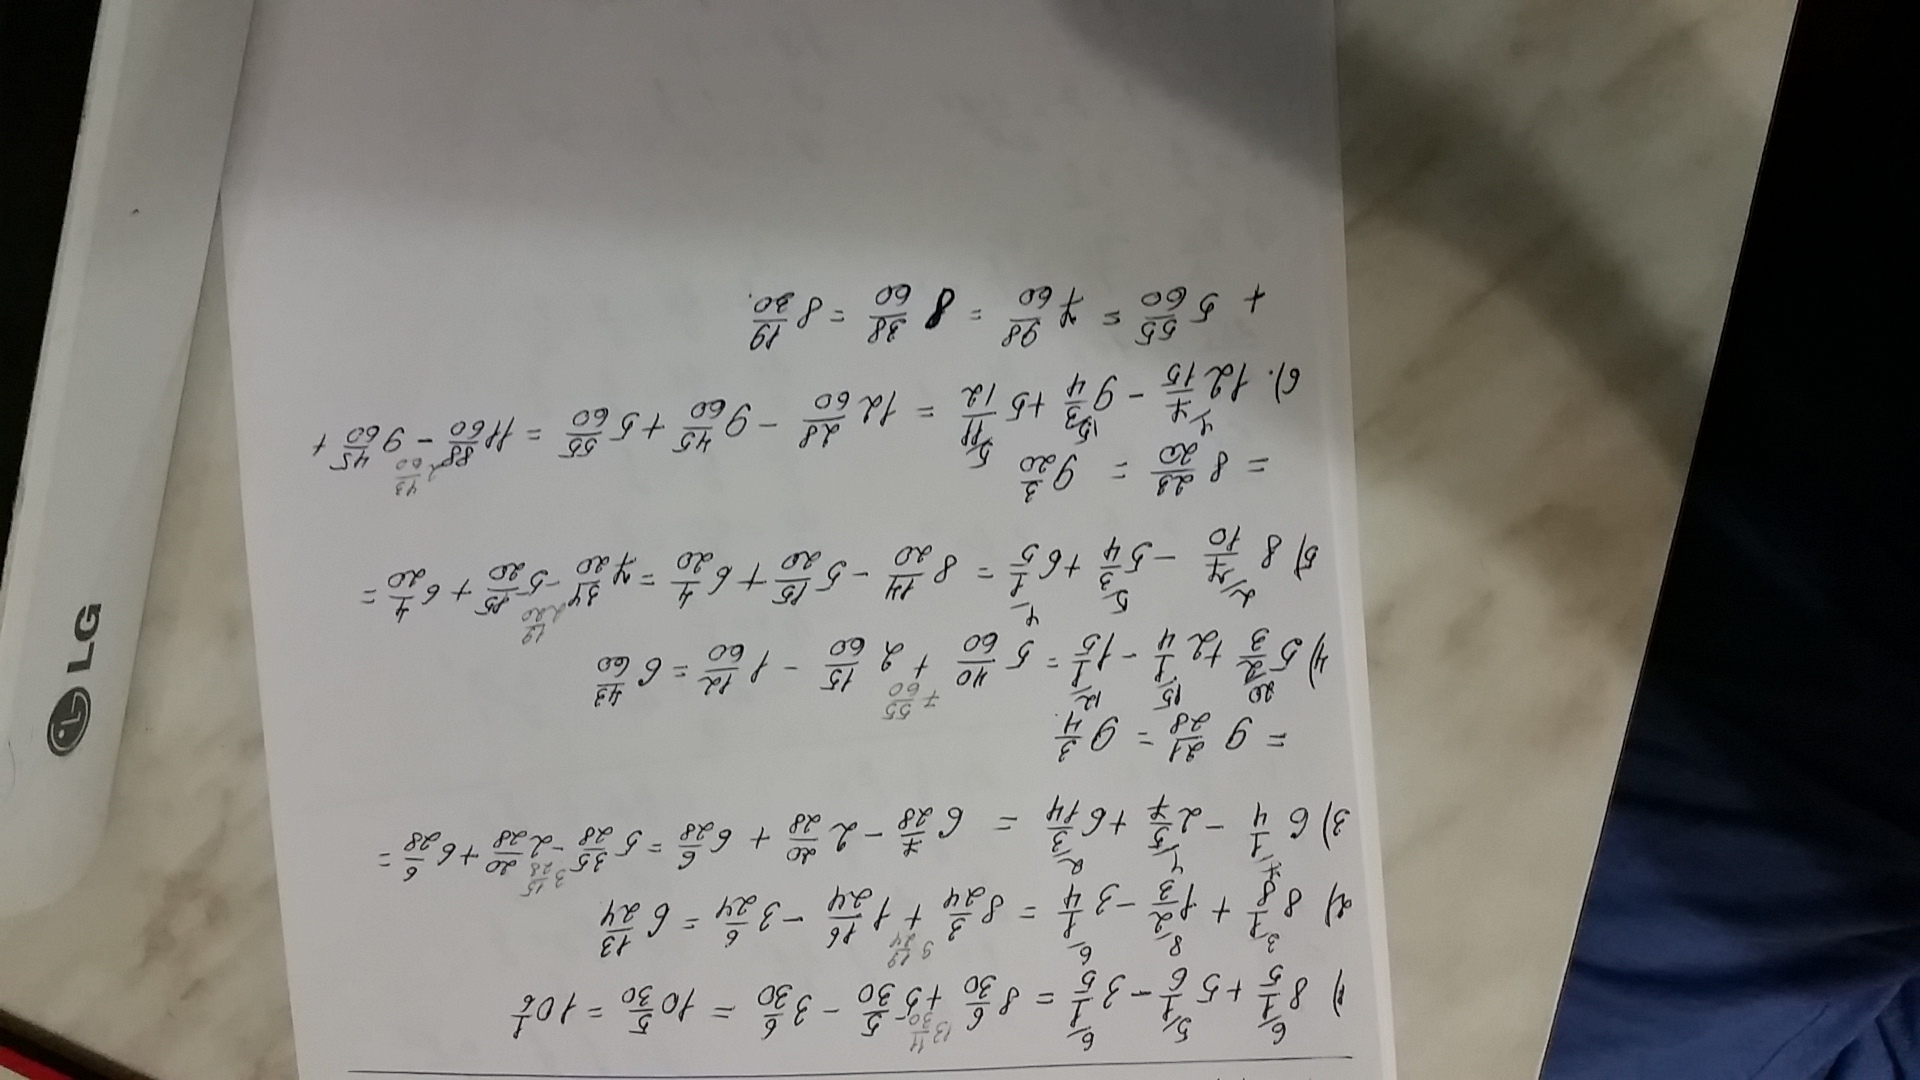 1) 8 1/5 + 5 1/6 - 3 1/5 = 8 6/30 + 5 5/30 - 3 6/30 = 10 5/30 = 10 1/6
2) 8 1/8 + 1 2/3 - 3 1/4 = 8 3/24 + 1 16/24 - 3 6/24 = 6 13/24
3) 6 1/4 - 2 5/7 + 6 3/14 = 6 7/28 - 2 20/28 + 6 6/28 = 5 35/28 - 2 20/28 + 6 6/28 =
= 9 21/28 = 9 3/4
4) 5 2/3 + 2 1/4 - 1 1/5 = 5 40/60 + 2 15/60 - 1 12/60 = 6 43/60
5) 8 7/10 - 5 3/4 + 6 1/5 = 8 14/20 - 5 15/20 + 6 4/20 = 7 34/20 - 5 15/20 + 6 4/20 =
= 8 23/20 = 9 3/20
6). 12 7/15 - 9 3/4 + 5 11/12 = 12 28/60 - 9 45/60 + 5 55/60 = 11 88/60 - 9 45/60 +
+ 5 55/60 = 7 98/60 = 8 38/60 = 8 19/30.
LG